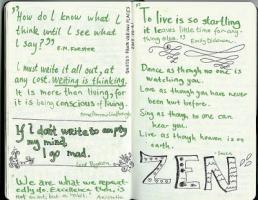 "How do I know what I
think until I see what
I say?"
E.M. FORSTER
I must write it all out, at
any cost. Writing is thinking.
It is more than living, for
it is being conscious of living.
Anne Morrow Lindbergh
If I don't write to empty
my mind,
I go mad.
Lord Byron
We are what we repeat-
edly do. Excellence then, is
not an act, but a habit.
Aristotle
"To live is so startling
it leaves little time for any-
thing else."
Emily Dickinson
Dance as though no one is
watching you.
Love as though you have never
been hurt before.
Sing as though no one can
hear you.
Live as though heaven is on
earth.
Souza
ZEN